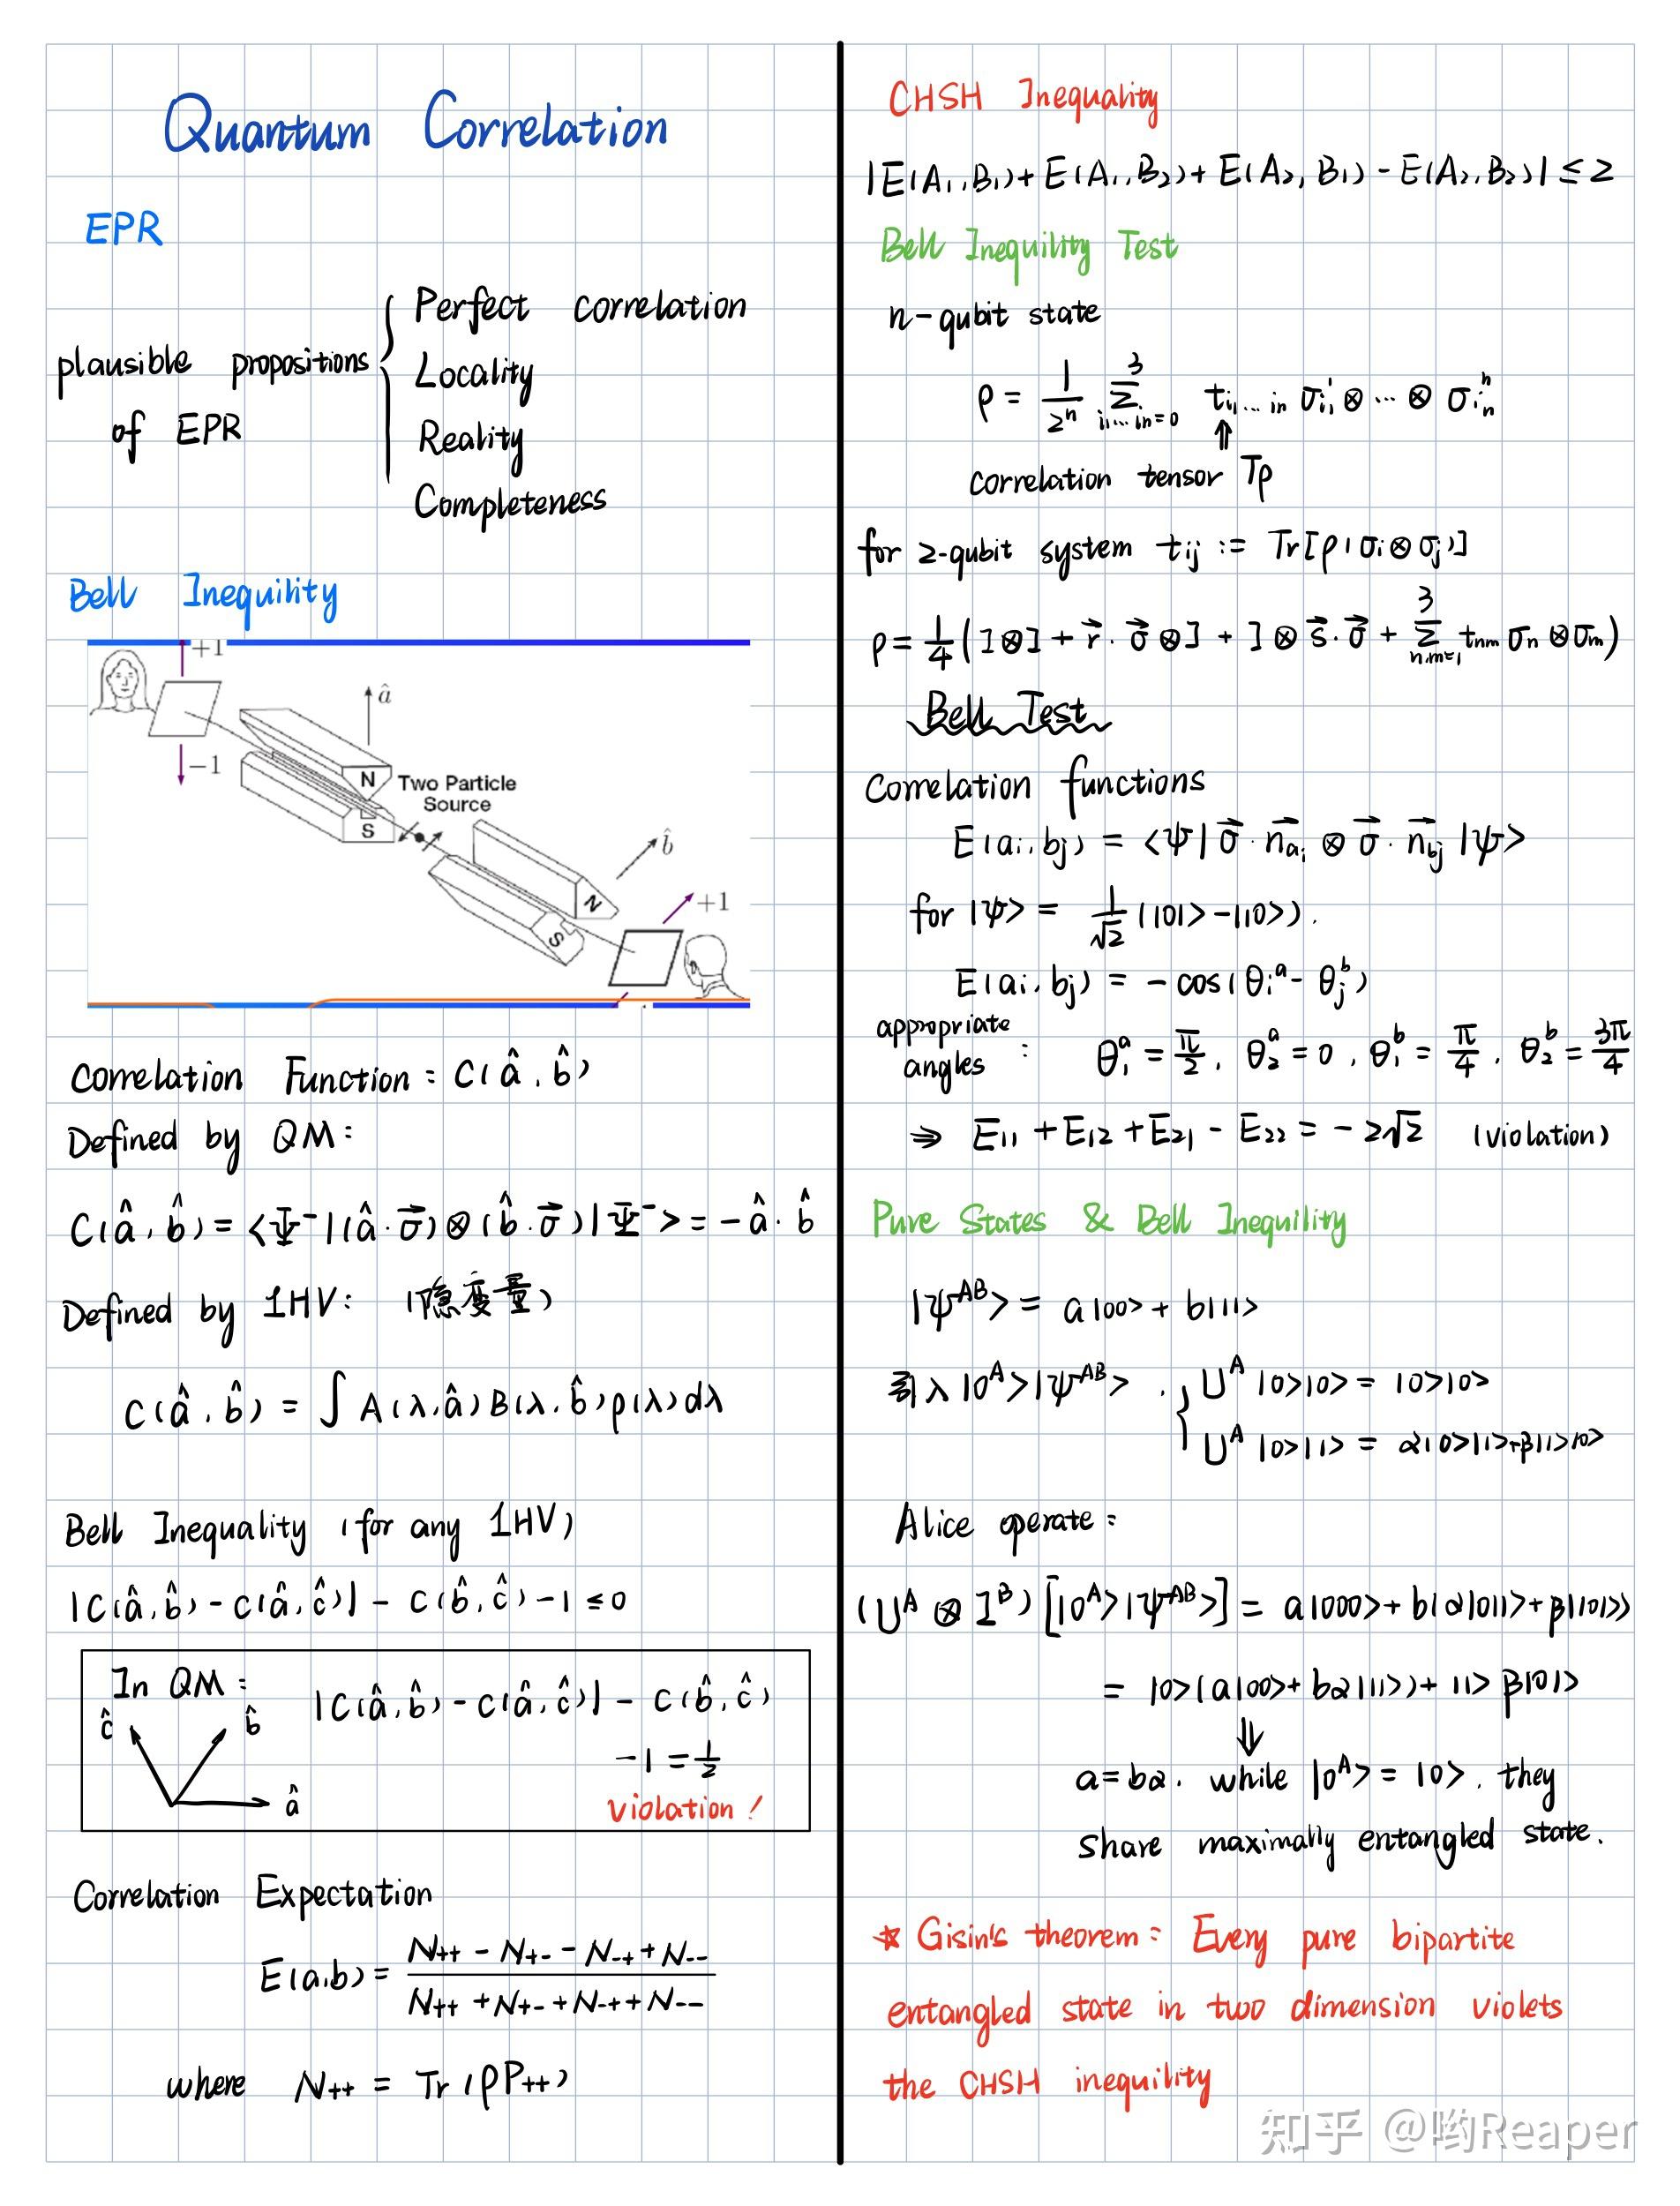 Quantum Correlation
EPR
plausible propositions of EPR
Perfect correlation
Locality
Reality
Completeness
Bell Inequility
+1
-1
â
N
S
Two Particle
Source
b̂
N
S
+1
Correlation Function: C(â, b̂)
Defined by QM:
C(â, b̂) = <Ψ⁻|(â·σ⃗)⊗(b̂·σ⃗)|Ψ⁻> = -â·b̂
Defined by lHV: (隐变量)
C(â, b̂) = ∫ A(λ,â)B(λ,b̂)ρ(λ)dλ
Bell Inequality (for any lHV)
|C(â,b̂) - C(â,ĉ)| - C(b̂,ĉ) - 1 ≤ 0
In QM:
|C(â,b̂) - C(â,ĉ)| - C(b̂,ĉ)
-1 = 1/2
violation!
ĉ
b̂
â
Correlation Expectation
E(a,b) = (N₊₊ - N₊₋ - N₋₊ + N₋₋)/(N₊₊ + N₊₋ + N₋₊ + N₋₋)
where N₊₊ = Tr(ρP₊₊)
CHSH Inequality
|E(A₁,B₁) + E(A₁,B₂) + E(A₂,B₁) - E(A₂,B₂)| ≤ 2
Bell Inequility Test
n-qubit state
ρ = 1/2ⁿ Σ³_{i₁...iₙ=0} t_{i₁...iₙ} σ¹_{i₁} ⊗ ... ⊗ σⁿ_{iₙ}
⇑
correlation tensor Tρ
for 2-qubit system tij := Tr[ρ(σi⊗σj)]
ρ = 1/4 (I⊗I + r⃗·σ⃗⊗I + I⊗s⃗·σ⃗ + Σ³_{n,m=1} tnm σn⊗σm)
Bell Test
Correlation functions
E(ai,bj) = <ψ|σ⃗·n⃗_{ai} ⊗ σ⃗·n⃗_{bj}|ψ>
for |ψ> = 1/√2 (|01> - |10>).
E(ai,bj) = -cos(θᵢᵃ - θⱼᵇ)
appropriate angles: θ₁ᵃ = π/2, θ₂ᵃ = 0, θ₁ᵇ = π/4, θ₂ᵇ = 3π/4
⇒ E₁₁ + E₁₂ + E₂₁ - E₂₂ = -2√2 (violation)
Pure States & Bell Inequility
|ψᴬᴮ> = a|00> + b|11>
引入|0ᴬ>|ψᴬᴮ>, { Uᴬ|0>|0> = |0>|0>
Uᴬ|0>|1> = α|0>|1> + β|1>|0>
Alice operate:
(Uᴬ⊗Iᴮ)[|0ᴬ>|ψᴬᴮ>] = a|000> + b(α|011> + β|101>)
= |0>(a|00> + bα|11>) + |1>β|01>
⇓
a = bα. while |0ᴬ> = |0>, they
share maximally entangled state.
* Gisin's theorem: Every pure bipartite
entangled state in two dimension violets
the CHSH inequility
知乎 @哟Reaper